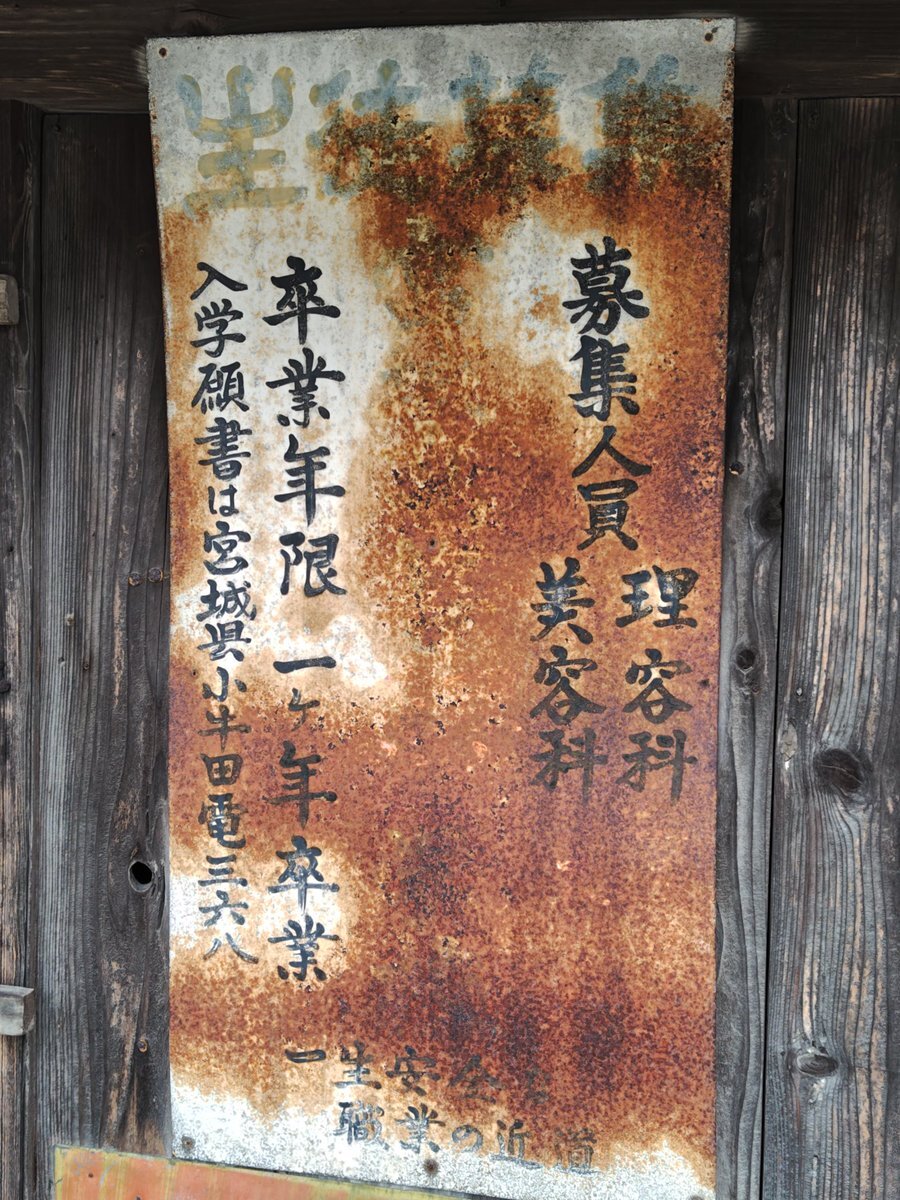 生徒募集
募集人員
理容科
美容科
卒業年限 一ヶ年卒業
入学願書は宮城県小牛田電三六八
一生安全な
職業の近道